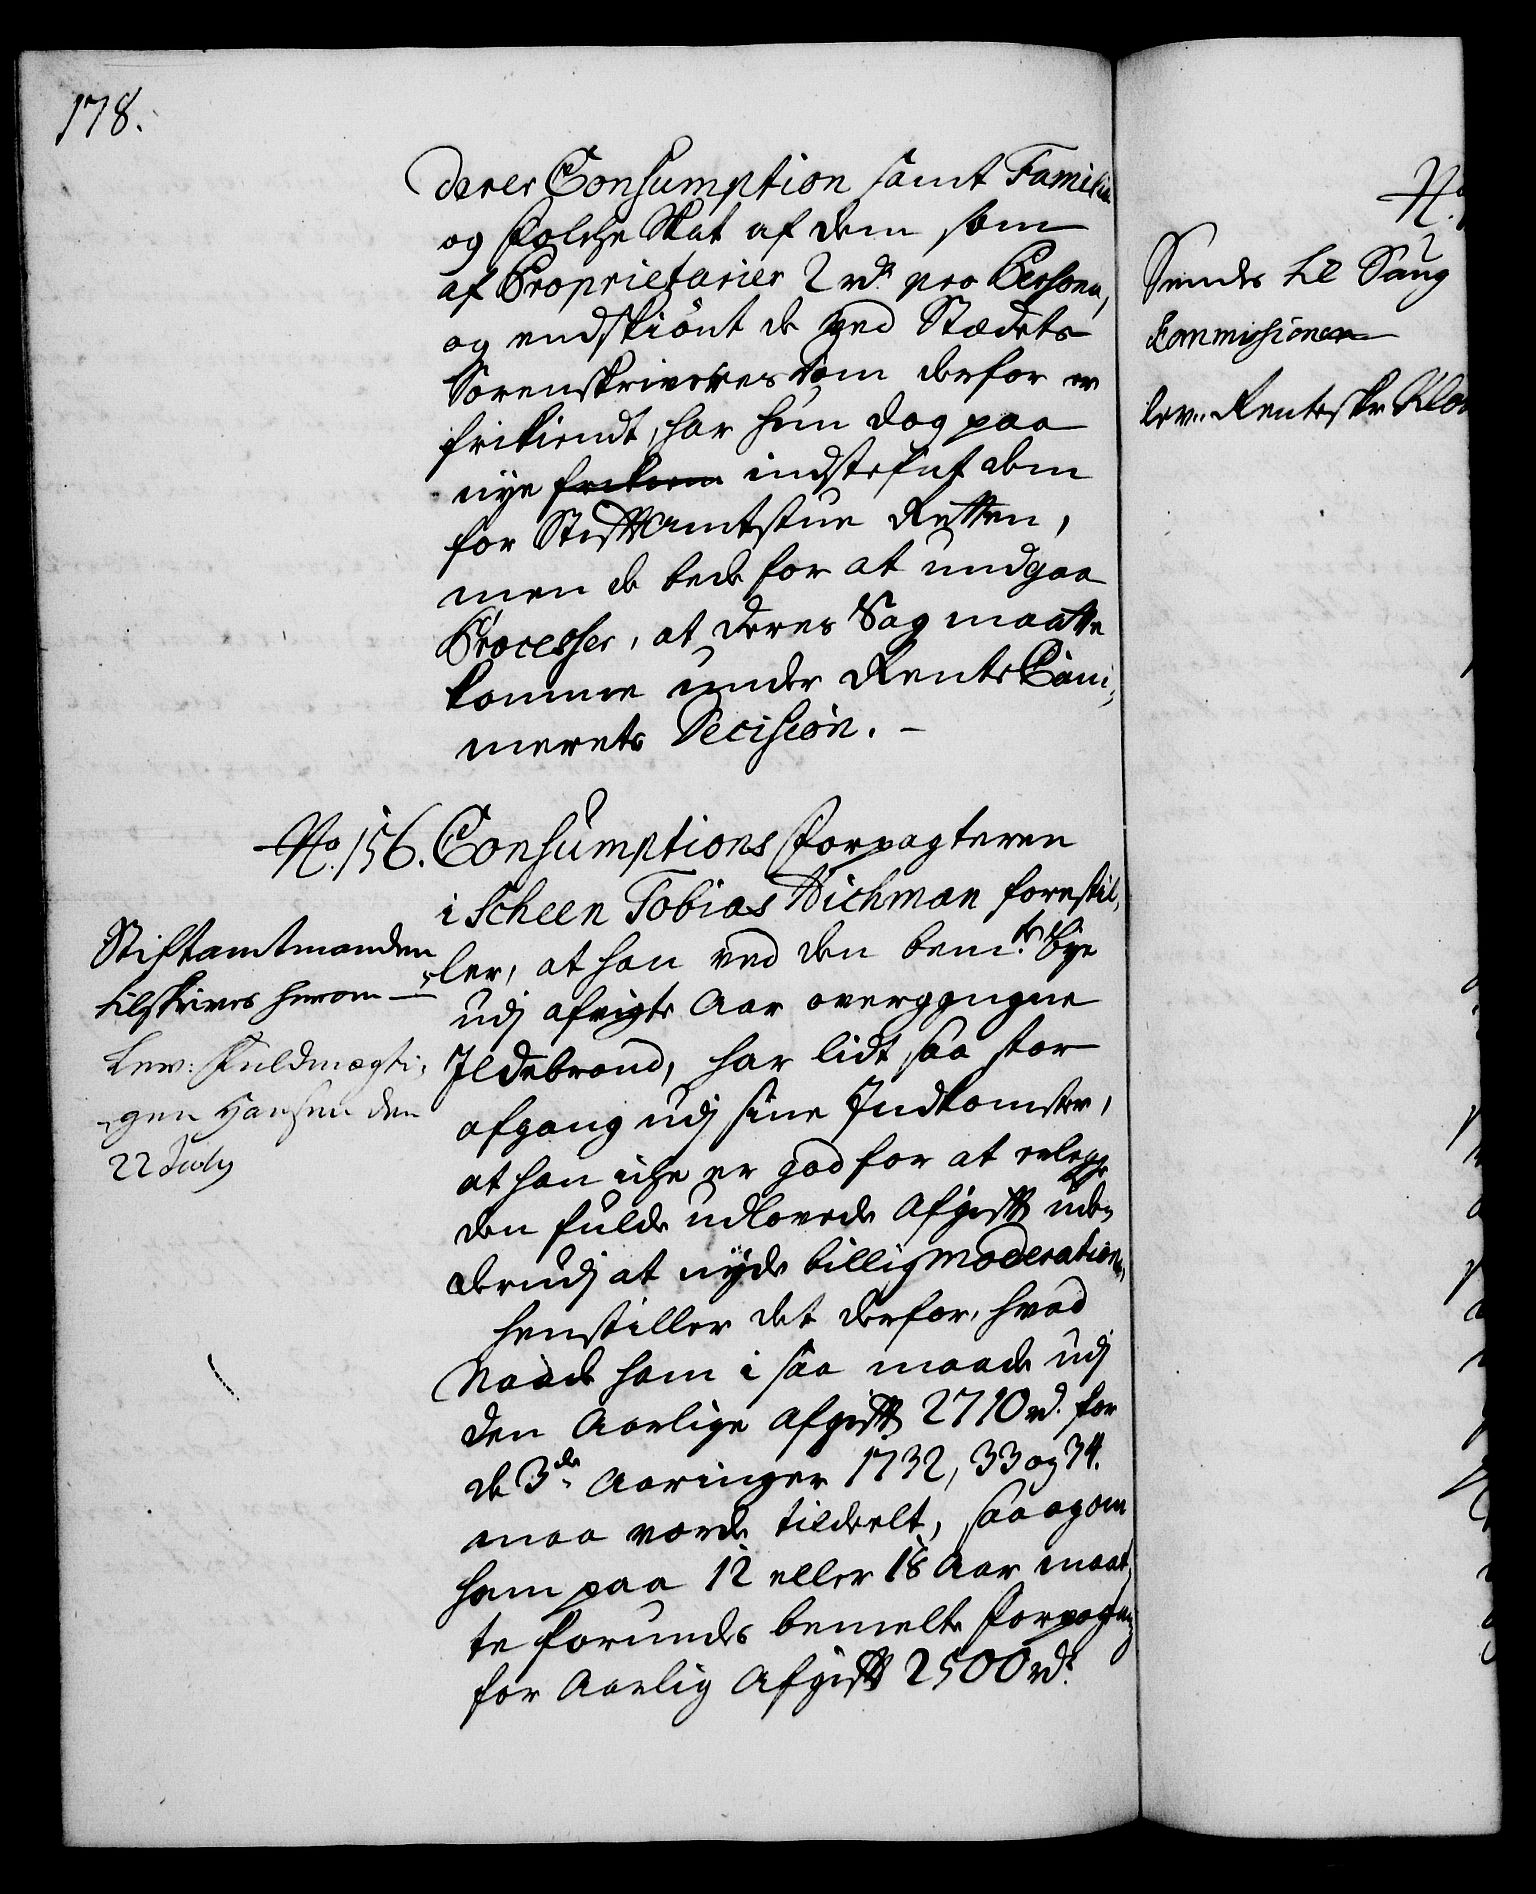 178.
deres Consumption samt Familie
og Folche Skat af dem som
af Proprietarier 2 rd. pro Persona,
og endskiönt de ved Stædets
Sorenskriveres Dom derfor er
frikiendt, har hun dog paa
nye indstefnt dem
for StiftAmtstue Retten,
men de bede for at undgaa
Processer, at deres Sag maatte
komme under Rente Cam,
merets Decision. –
No. 156. Consumptions Forpagteren
i Scheen Tobias Wichman forestil,
ler, at han ved den bemte. Bye
udj afvigte Aar overgangne
Ildebrand, har lidt saa stor
afgang udj sine Indkomster,
at han iche er god for at erlegge
den fulde udlovede Afgift uden
derudj at nyde billig Moderation,
henstiller det derfor, hvad
Naade ham i saa maade udj
den Aarlige afgift 2710 rd. for
de 3de Aaringer 1732, 33 og 34.
maa vorde tildeelt, saa og om
ham paa 12 eller 18 Aar maat,
te forundes bemelte Forpagtning
for Aarlig Afgift 2500 rd.
Stiftamtmanden
tilskrives herom
Lev: Fuldmægti,
gen Hansen den
22 July
Sendes til Saug
Commissionen
lev. Renteskr.